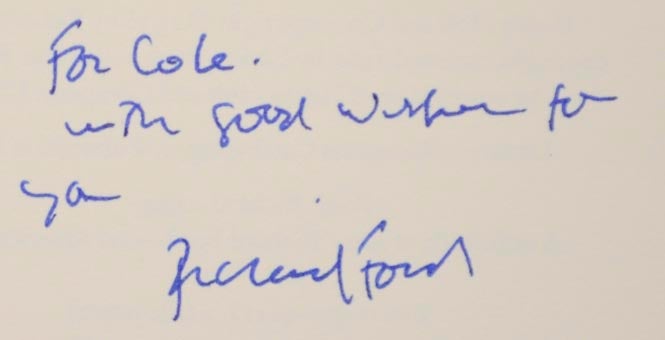 For Cole.
with good wishes to
you
Richard Ford